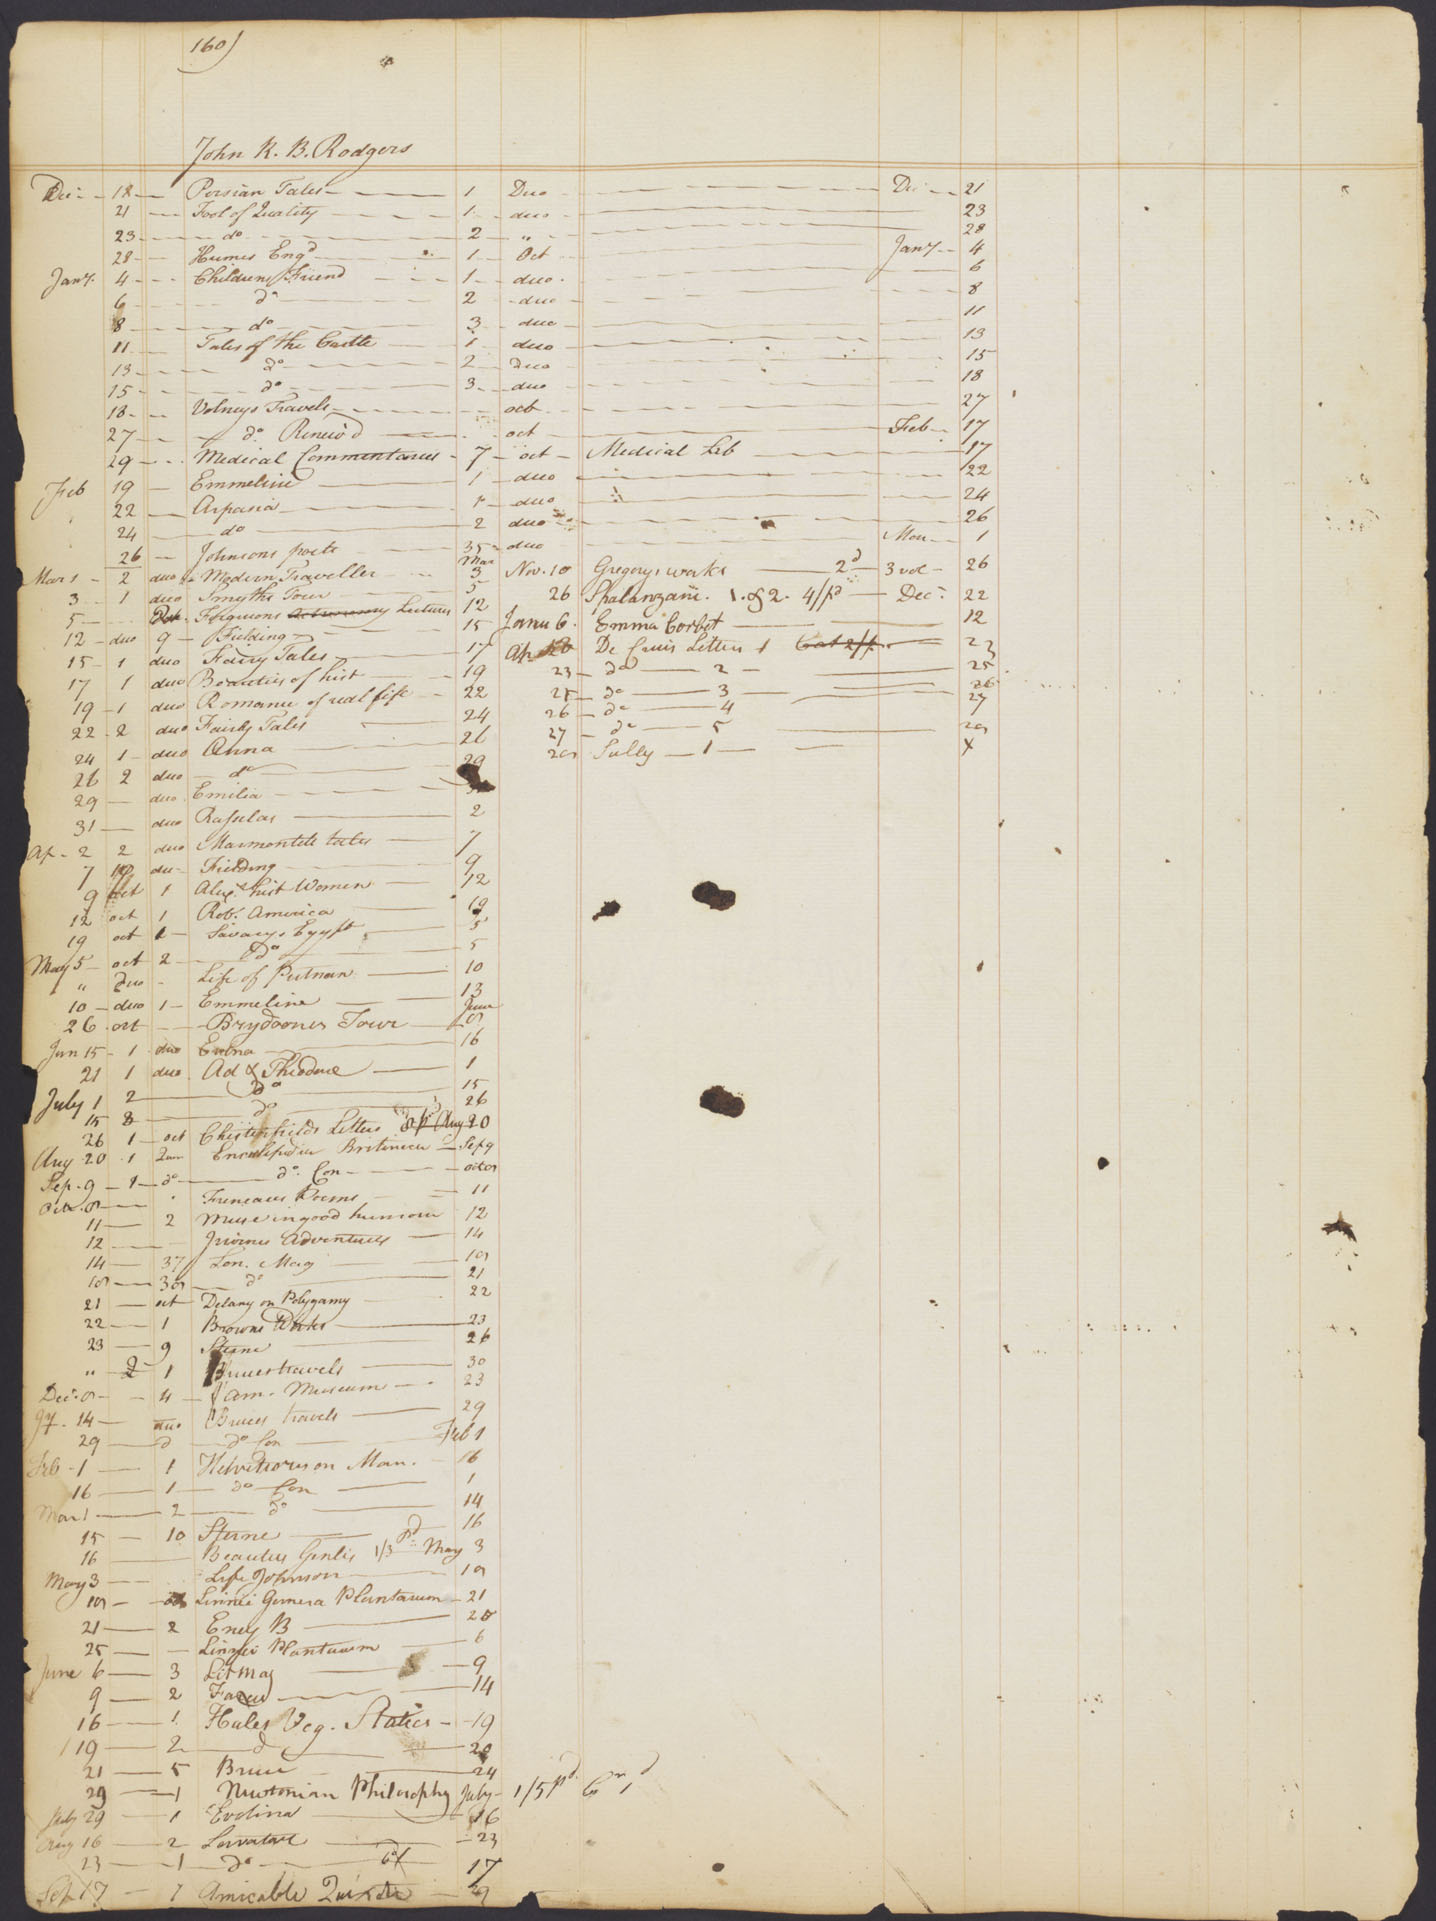 160)
John R. B. Rodgers
Dec 18 Persian Tales 1 Duo Dec 21
21 Fool of Quality 1 duo 23
23 do 2 " 28
28 Humes Engd 1 Oct Jany 4
Jany. 4 Childrens Friend 1 duo 6
6 do 2 duo 8
8 do 3 duo 11
11 Tales of the Castle 1 duo 13
13 do 2 duo 15
15 do 3 duo 18
18 Volneys Travels oct 27
27 do. Renew'd oct Feb 17
29 Medical Commentaries 7 oct Medical Lib 17
Feb 19 Emmeline 1 duo 22
22 Aspasia 1 duo 24
24 do 2 duo 26
26 Johnsons poets 35 duo Mar 1
Mar 1 2 duo Modern Traveller Mar 3
3 1 duo Smyths Tour 5
5 Oct. Fergusons Astronomy Lectures 12
12 duo 9 Fielding 15
15 1 duo Fairy Tales 17
17 1 duo Beauties of hist 19
19 1 duo Romance of real life 22
22 2 duo Fairy Tales 24
24 1 duo Anna 26
26 2 duo do 29
29 duo Emilia
31 duo Rasselas 2
Ap. 2 2 duo Marmontels tales 7
7 10 duo Fielding 9
9 oct 1 Alexr hist Women 12
12 oct 1 Rob. America 19
19 oct 1 Savarys Egypt 5
May 5 oct 2 do 5
" duo Life of Putnam 10
10 duo 1 Emmeline 13
26 oct Brydoones Tour June
Jun 15 1 duo 16
21 1 duo Ad & Theodore 1
July 1 2 do 15
15 3 do 26
26 1 oct Chesterfields Letters Aug 20
Aug 20 1 Encelipedia Britinica Sep 9
Sep. 9 1 do do. Con
Octr. 8 Freneaus Poems 11
11 2 Muse in good humour 12
12 Adventures 14
14 37 Lon. Mag 18
18 38 do 21
21 oct Delany on Polygamy 22
22 1 Browns Works 23
23 9 Sterne 26
" 2 1 Bruces travels 30
Dec. 8 4 Am. Museum 23
Jy. 14 duo Bruces travels 29
29 do Con Feb 1
Feb 1 1 Helvetious on Man. 16
16 1 do Con 1
Mar 1 2 do 14
15 10 Sterne 16
16 Beauties Genlis 1/3 pd May 3
May 3 Life Johnson 18
18 Linnei Genera Plantarum 21
21 2 Ency B 25
25 Linnei Plantarum 6
June 6 3 Lit Mag 9
9 2 14
16 1 Hales Veg. Statics 19
19 2 d 20
21 5 Bruce 24
29 1 Newtonian Philosophy July 1/5 pd.
July 29 1 Evelina 16
Aug 16 2 23
23 1 do 17
Sep 17 1 Amicable Quixote 29
Nov. 10 Gregorys works 2d 3 vol 26
26 Spalanzani. 1. & 2. 4/pd Dec. 22
Janu 6. Emma Corbet 12
Ap De Letters 1 23
23 do 2 25
25 do 3 26
26 do 4 27
27 do 5 28
28 Sully 1 X